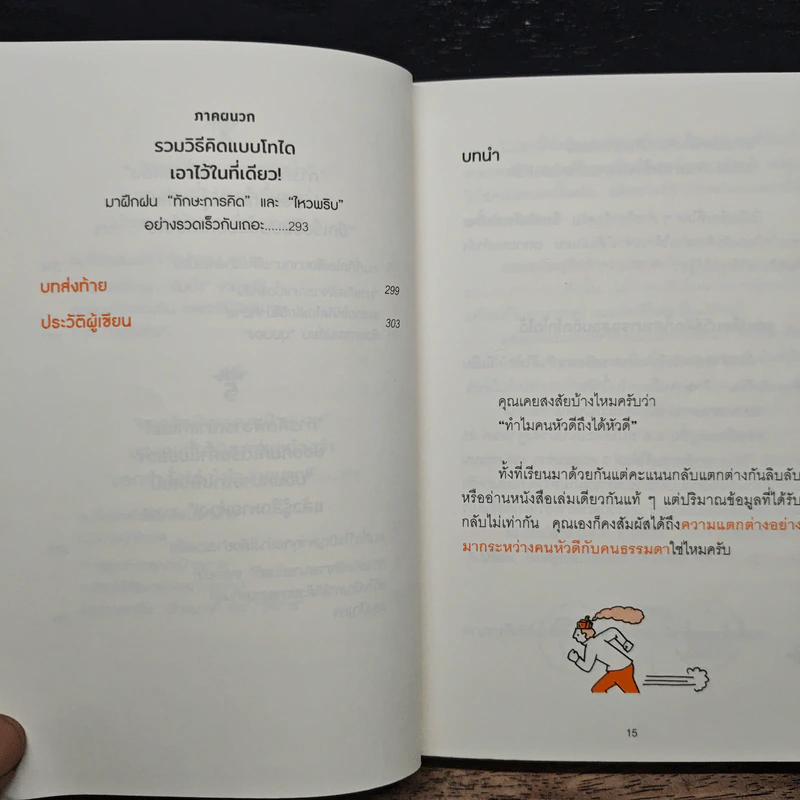 ภาคผนวก
รวมวิธีคิดแบบโทได
เอาไว้ในที่เดียว!
มาฝึกฝน “ทักษะการคิด” และ “ไหวพริบ”
อย่างรวดเร็วกันเถอะ.......293
บทส่งท้าย 299
ประวัติผู้เขียน 303
บทนำ
คุณเคยสงสัยบ้างไหมครับว่า
“ทำไมคนหัวดีถึงได้หัวดี”
ทั้งที่เรียนมาด้วยกันแต่คะแนนกลับแตกต่างกันลิบลับ
หรืออ่านหนังสือเล่มเดียวกันแท้ ๆ แต่ปริมาณข้อมูลที่ได้รับ
กลับไม่เท่ากัน คุณเองก็คงสัมผัสได้ถึงความแตกต่างอย่าง
มากระหว่างคนหัวดีกับคนธรรมดาใช่ไหมครับ
15